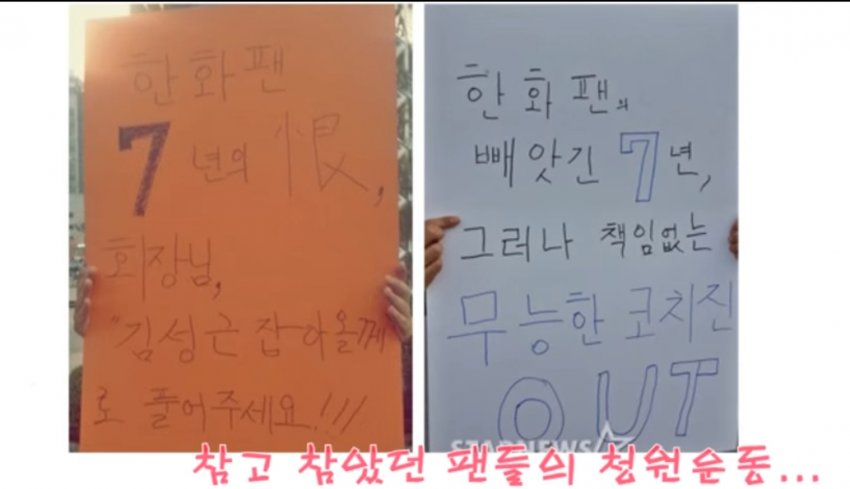 한화팬
7년의 恨,
회장님,
"김성근 잡아올께"
로 풀어주세요!!!
한화팬의
빼앗긴 7년,
그러나 책임없는
무능한 코치진
OUT
STARNEWS
참고 참았던 팬들의 청원운동...